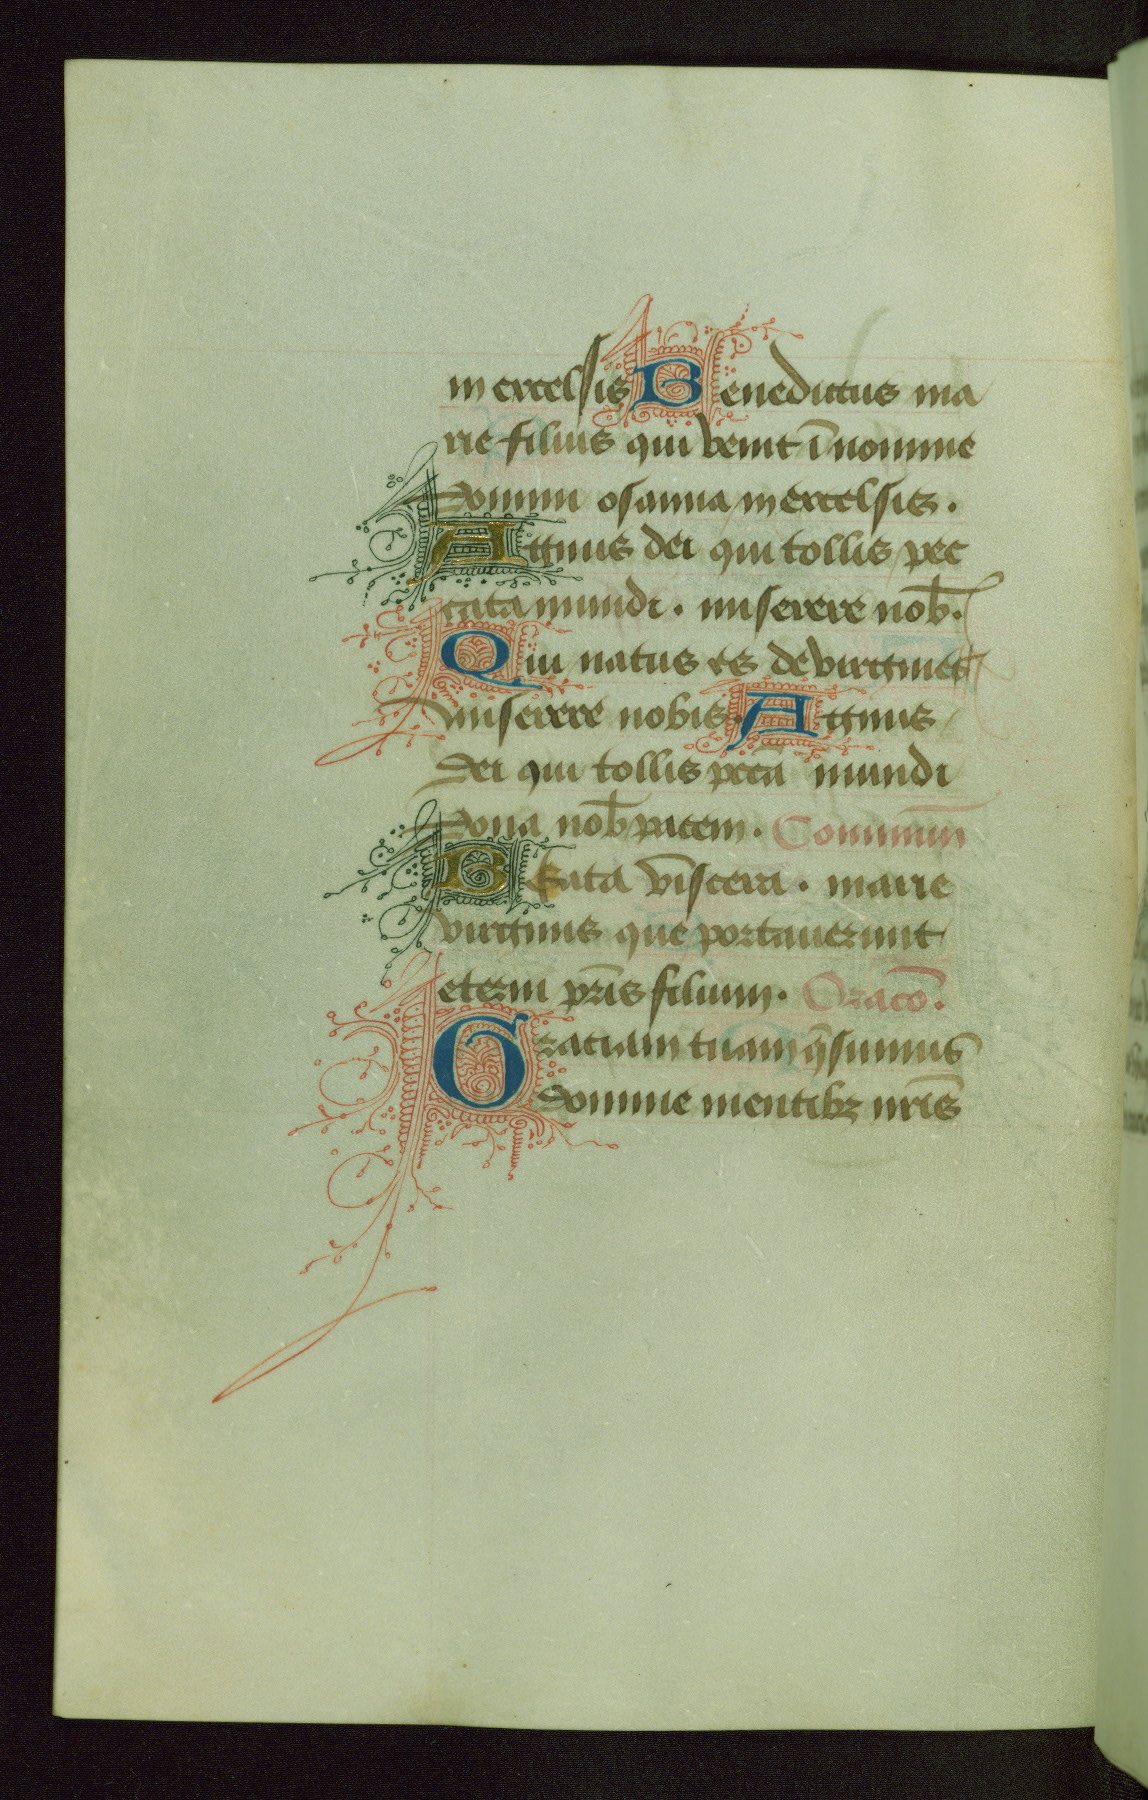 in excelsis Benedictus ma
rie filius qui venit ī nomine
domini osanna in excelsis.
Agnus dei qui tollis pec
cata mundi. miserere nob̄.
Qui natus es de virgine
miserere nobis. Agnus
dei qui tollis pccā mundi
dona nob̄ pacem. Commun̄
Beata viscera. marie
virginis que portauerunt
eterni pr̄is filium. Oracō.
Gratiam tuam q̄sumus
domine mentibꝫ nr̄is